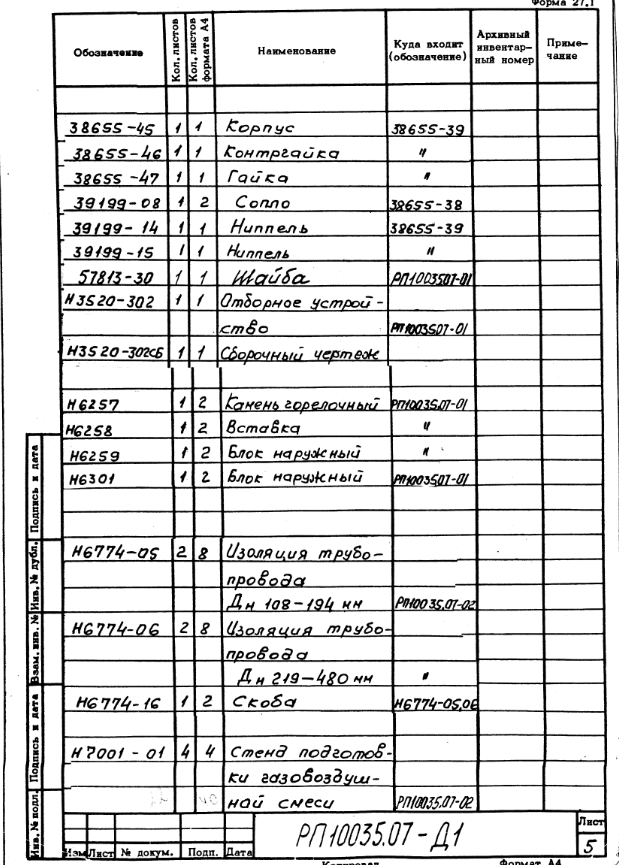 Форма 27.1
Обозначение Кол. листов Кол. листов формата А4 Наименование Куда входит (обозначение) Архивный инвентар-ный номер Приме-чание
38655-45 1 1 Корпус 38655-39
38655-46 1 1 Контргайка "
38655-47 1 1 Гайка "
39199-08 1 2 Сопло 38655-38
39199-14 1 1 Ниппель 38655-39
39199-15 1 1 Ниппель "
57813-30 1 1 Шайба РП10035.07-01
Н3520-302 1 1 Отборное устрой-
ство РП10035.07-01
Н3520-302СБ 1 1 Сборочный чертеж
Н6257 1 2 Камень горелочный РП10035.07-01
Н6258 1 2 Вставка "
Н6259 1 2 Блок наружный "
Н6301 1 2 Блок наружный РП10035.07-01
Н6774-05 2 8 Изоляция трубо-
провода
Дн 108-194 мм РП10035.07-02
Н6774-06 2 8 Изоляция трубо-
провода
Дн 219-480 мм "
Н6774-16 1 2 Скоба Н6774-05,06
Н7001-01 4 4 Стенд подготов-
ки газовоздуш-
ной смеси РП10035.07-02
Инв. № подл. Подпись и дата Взам. инв. № Инв. № дубл. Подпись и дата
РП10035.07-Д1
Лист
5
Изм Лист № докум. Подп. Дата
Копировал Формат А4